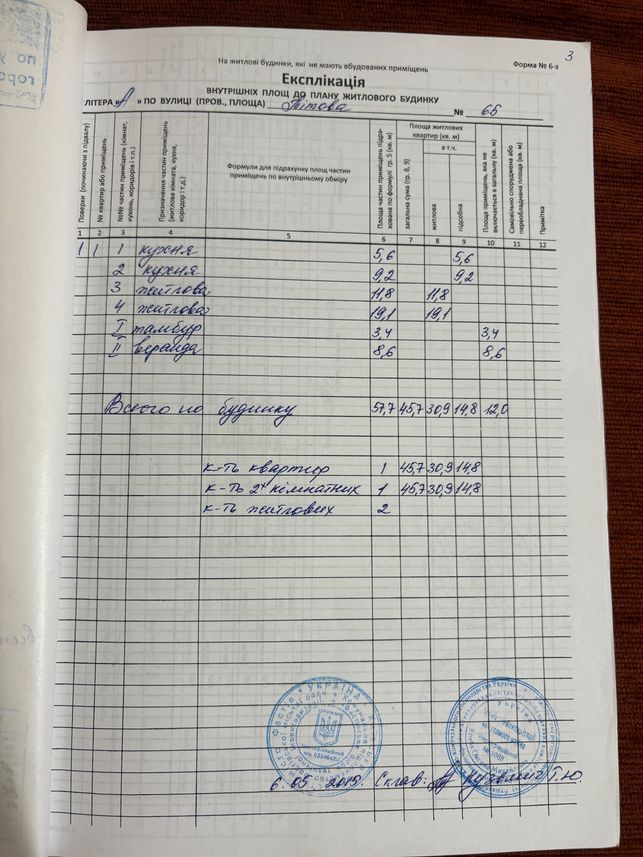 3
На житлові будинки, які не мають вбудованих приміщень
Форма № 6-з
Експлікація
ВНУТРІШНІХ ПЛОЩ ДО ПЛАНУ ЖИТЛОВОГО БУДИНКУ
ЛІТЕРА «А» ПО ВУЛИЦІ (ПРОВ., ПЛОЩА) Тітова № 65
Поверхи (починаючи з підвалу)
№ квартир або приміщень
№№ частин приміщень (кімнат, кухонь, коридорів і т.п.)
Призначення частин приміщень (житлова кімната, кухня, коридор і т.д.)
Формули для підрахунку площ частин приміщень по внутрішньому обміру
Площа частин приміщень підрахована по формулі гр. 5 (кв. м)
Площа житлових квартир (кв. м)
загальна сума (гр. 8, 9)
в т.ч.
житлова
підсобна
Площа приміщень, яка не включається в загальну (кв. м)
Самовільно споруджена або переобладнана площа (кв. м)
Примітка
1 2 3 4 5 6 7 8 9 10 11 12
1 1 1 кухня 5,6 5,6
2 кухня 9,2 9,2
3 житлова 11,8 11,8
4 житлова 19,1 19,1
I тамбур 3,4 3,4
II веранда 8,6 8,6
Всього по будинку 57,7 45,7 30,9 14,8 12,0
к-ть квартир 1 45,7 30,9 14,8
к-ть 2х кімнатних 1 45,7 30,9 14,8
к-ть житлових 2
УКРАЇНА
6.05.2015. Склав: Т.Ю.